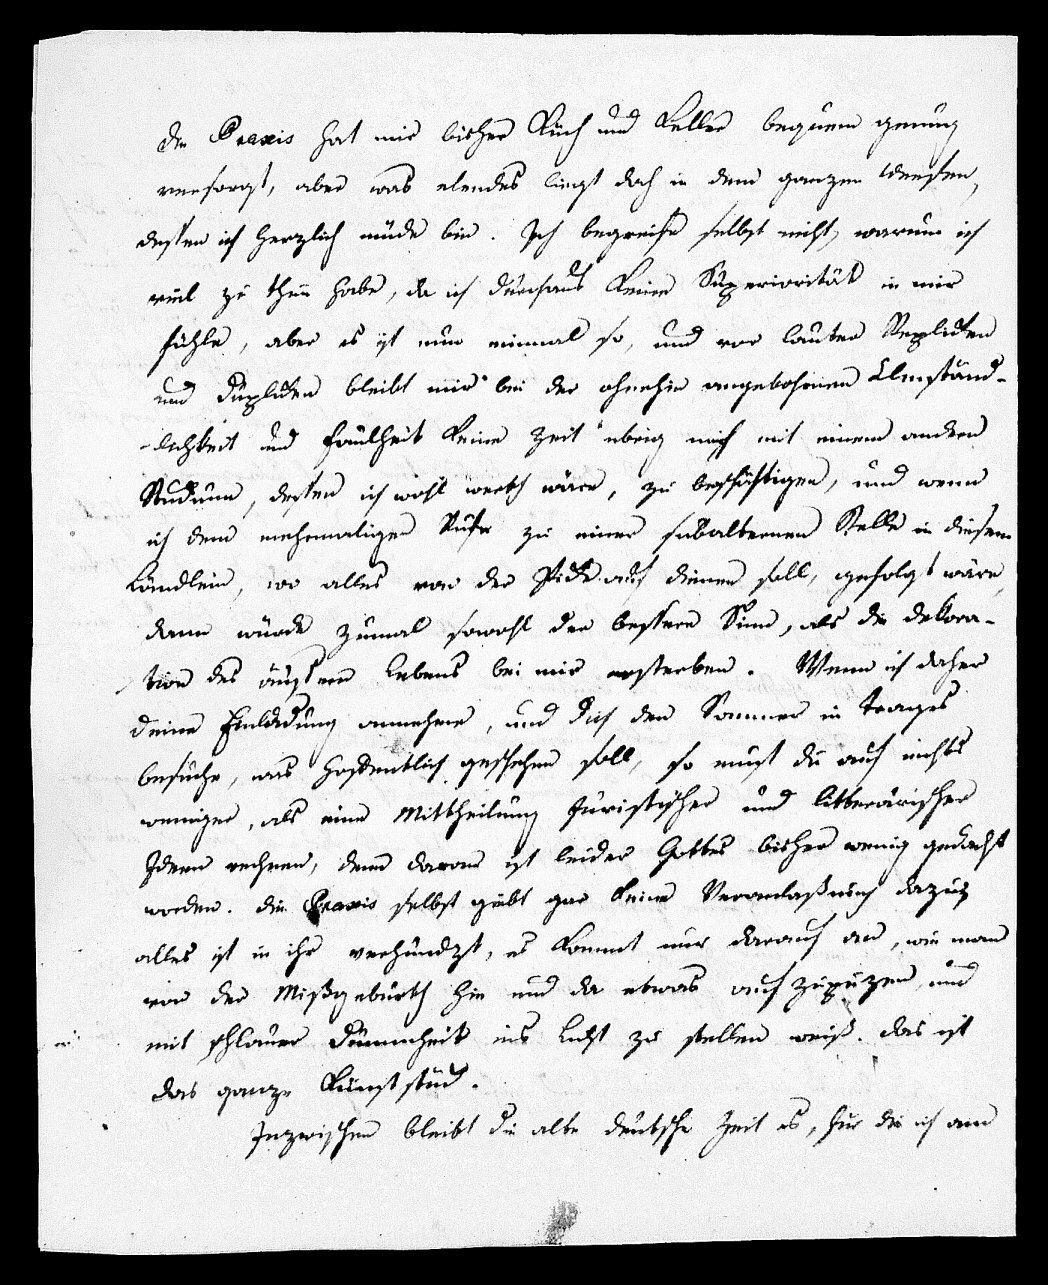 Die Praxis hat mir bisher Küch und Keller bequem genung
versorgt, aber was elendes liegt doch in dem ganzen Weesen,
dessen ich herzlich müde bin. Ich begreife selbst nicht, warum ich
viel zu thun habe, da ich durchaus keine Superiorität in mir
fühle, aber es ist nun einmal so, und vor lauter Repliken
und Dupliken bleibt mir bei der ohnehin angebohrnen Umständ-
-lichkeit und Faulheit keine Zeit übrig mich mit einem andern
Studium, dessen ich wohl werth wäre, zu beschäftigen, und wenn
ich dem mehrmaligen Rufe zu einer subalternen Stelle in diesem
Ländlein, wo alles von der Picke auf dienen soll, gefolgt wäre,
dann würde zumal sowohl der bessere Sinn, als die Dekora-
tion des äußern Lebens bei mir ersterben. Wenn ich daher
deine Einladung annehme, und dich den Sommer in Trages
besuche, was hoffentlich geschehen soll, so must du auf nichts
weniger, als eine Mittheilung juristischer und litterärischer
Ideen rechnen, denn daran ist leider Gottes bisher wenig gedacht
worden. Die Praxis selbst giebt gar keine Veranlaßung dazu;
alles ist in ihr verhundzt, es kommt nur darauf an, wie man
von der Mißgeburth hie und da etwas aufzupuzen, und
mit schlauer Dummheit ins Licht zu stellen weiß. Das ist
das ganze Kunststück.
Inzwischen bleibt die alte deutsche Zeit es, für die ich am